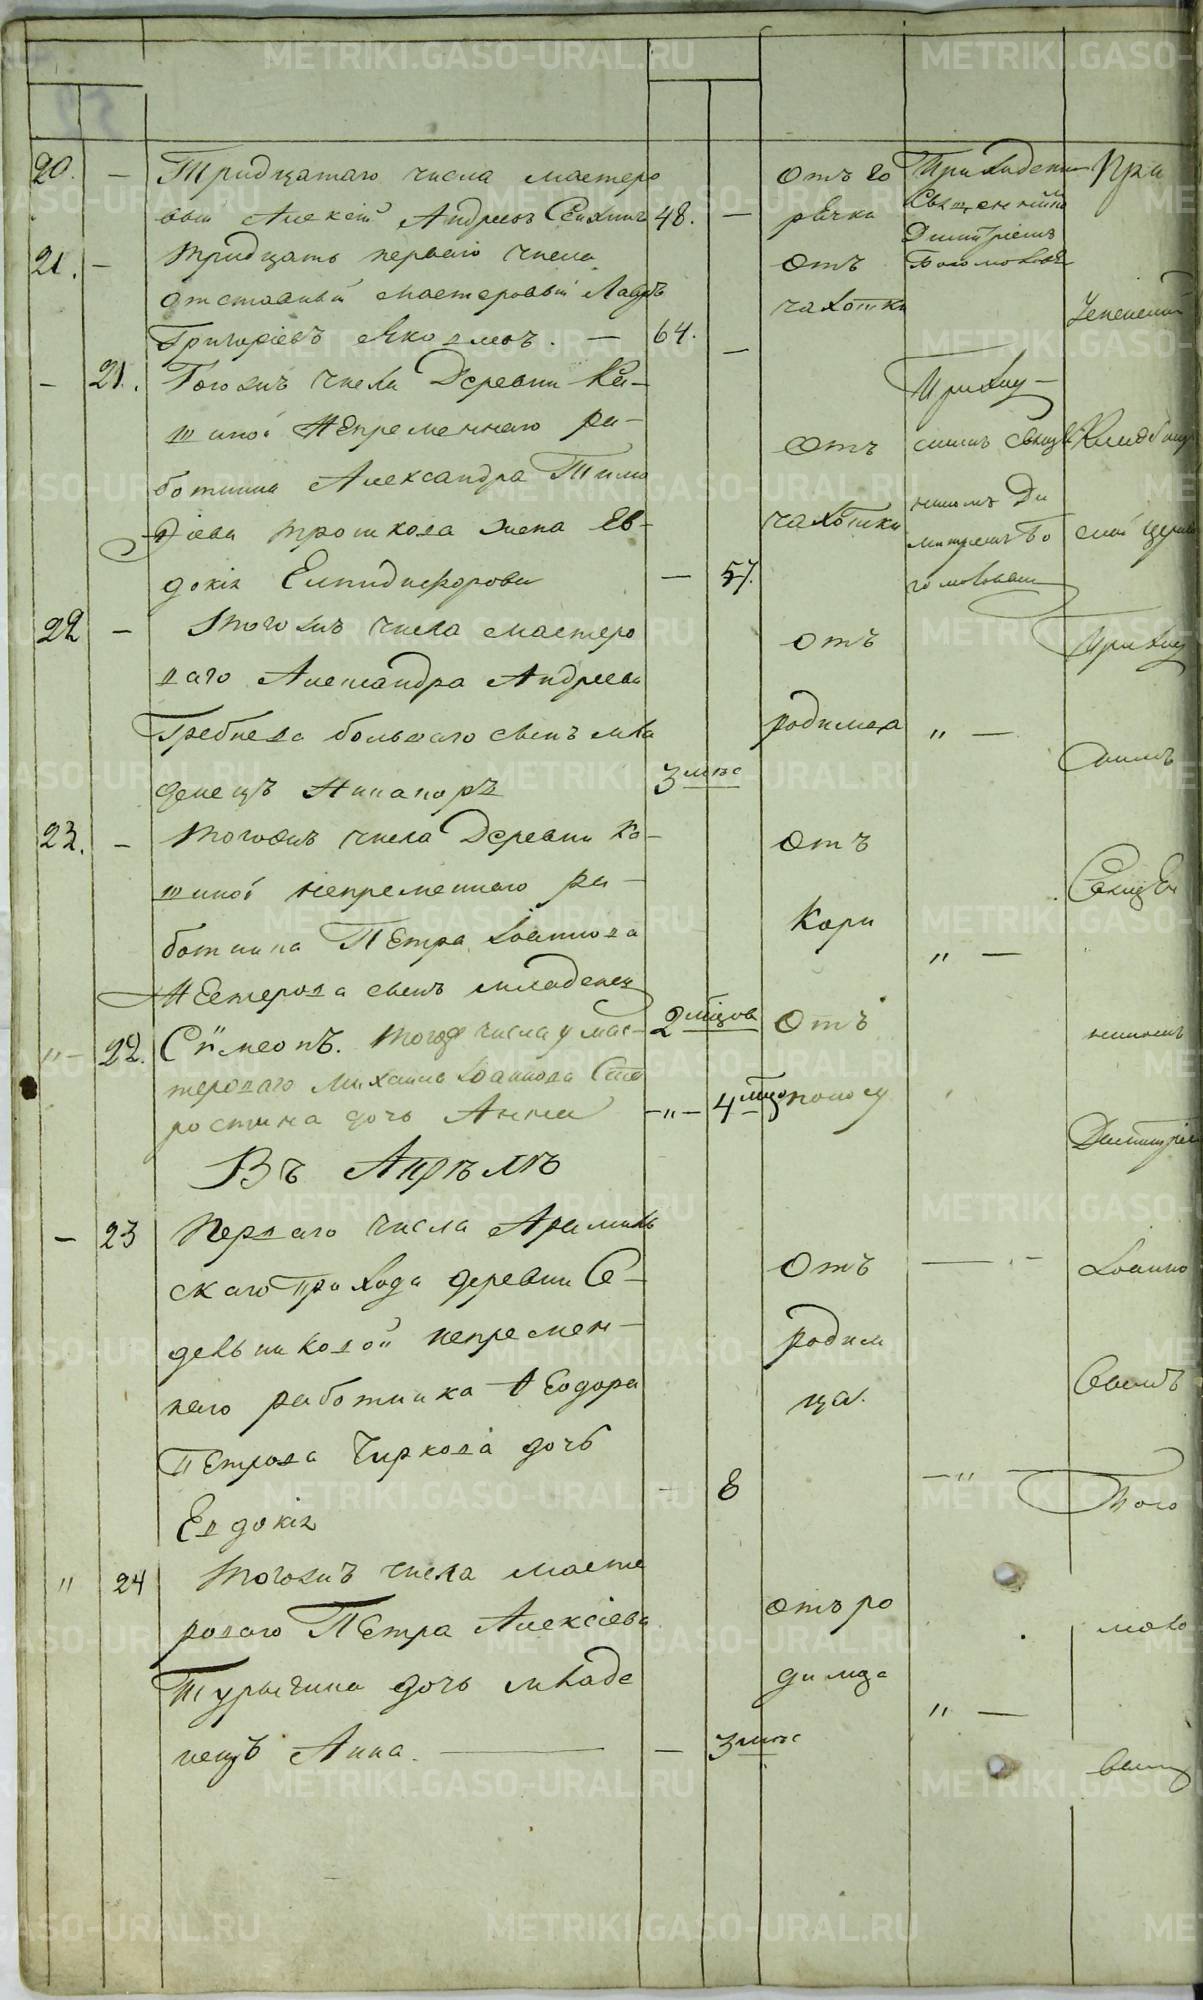 20. — Тридцатаго числа мастеро
вый Алексей Андреевъ 48. —
Отъ го
рячки
Приходским
Священнико
Димитріемъ
Богомоловым
При
21. — Тридцать перваго числа
отставный мастеровый Лавръ
Григоріевъ Яковлевъ. — 64. —
Отъ
чахотки
Успенской
— 21. Тогожъ числа Деревни Ка—
шиной Непременнаго ра—
ботника Александра Тимо
фіева Трошкова жена Ев—
докія Елпидифорова — 57.
Отъ
чахотки
Приход—
скимъ Свяще
никомъ Ди
митріемъ Бо
гомоловым
Кладбищ
ской церкви
22 — Тогожъ числа мастеро
ваго Александра Андреева
Гребнева большаго сынъ мла
денецъ Никаноръ 3 мѣс
отъ
родимца
" —
Приход
скимъ
23. — Тогожъ числа Деревни Ка—
шиной непременнаго ра—
ботника Петра Іоаннова
Нестерова сынъ младенец
Сѵмеонъ. 2 мѣсцов
отъ
Кори
" —
Священ
" — 22. Тогож числа у мас—
тероваго Михаила Іоаннова
ростина дочь Анна — " — 4 мѣс
Отъ
поносу
никомъ
Димитріе
Въ Апрѣлѣ
— 23 Перваго числа Арамиль
скаго прихода деревни Се—
дельниковой непремен—
наго работника Ѳеодора
Петрова Чиркова дочь
Евдокія — 8
Отъ
родим
ца.
— " —
Іоанно
вымъ
Бого
" 24 Тогожъ числа масте
роваго Петра Алексіева
Турыгина дочь младе
нецъ Анна. — — 3 мѣс
отъ ро
димца
" —
моло
вым
METRIKI.GASO-URAL.RU